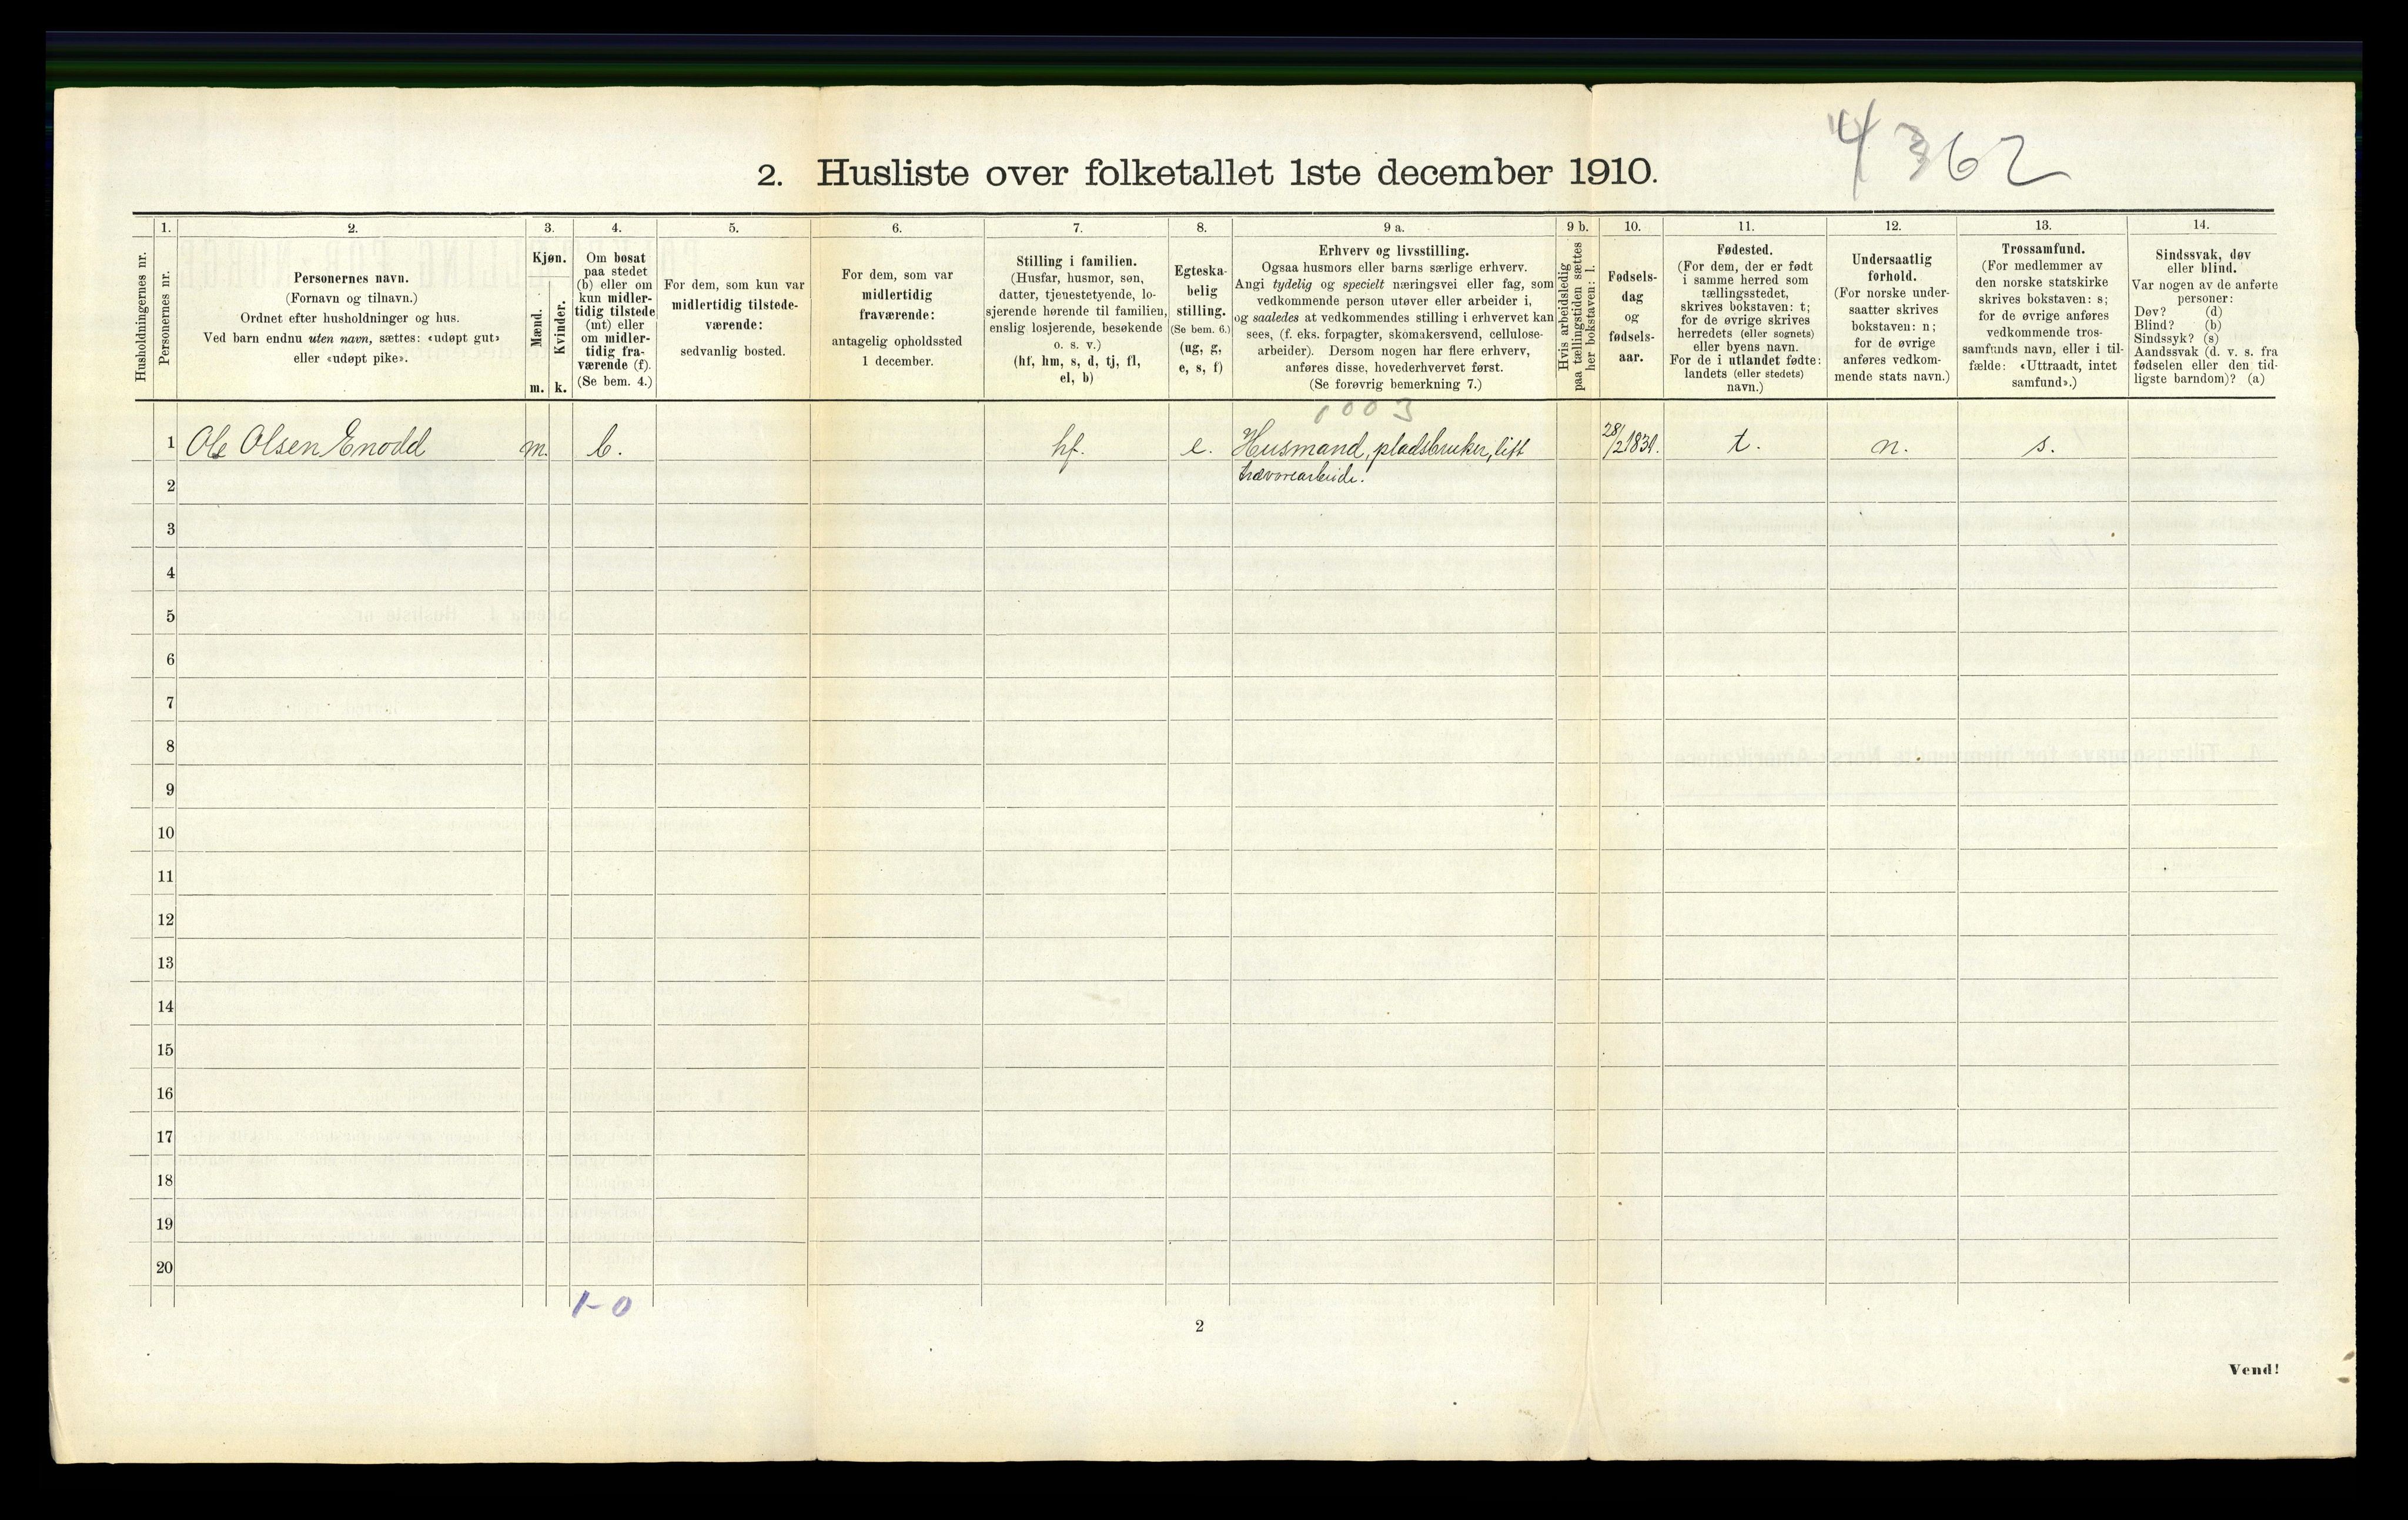 4362
2. Husliste over folketallet 1ste december 1910.
Husholdningernes nr.
1.
Personernes nr.
2.
Personernes navn.
(Fornavn og tilnavn.)
Ordnet efter husholdninger og hus.
Ved barn endnu uten navn, sættes: «udøpt gut»
eller «udøpt pike».
3.
Kjøn.
Mænd.
Kvinder.
m. k.
4.
Om bosat
paa stedet
(b) eller om
kun midler-
tidig tilstede
(mt) eller
om midler-
tidig fra-
værende (f).
(Se bem. 4.)
5.
For dem, som kun var
midlertidig tilstede-
værende:
sedvanlig bosted.
6.
For dem, som var
midlertidig
fraværende:
antagelig opholdssted
1 december.
7.
Stilling i familien.
(Husfar, husmor, søn,
datter, tjenestetyende, lo-
sjerende hørende til familien,
enslig losjerende, besøkende
o. s. v.)
(hf, hm, s, d, tj, fl,
el, b)
8.
Egteska-
belig
stilling.
(Se bem. 6.)
(ug, g,
e, s, f)
9 a.
Erhverv og livsstilling.
Ogsaa husmors eller barns særlige erhverv.
Angi tydelig og specielt næringsvei eller fag, som
vedkommende person utøver eller arbeider i,
og saaledes at vedkommendes stilling i erhvervet kan
sees, (f. eks. forpagter, skomakersvend, cellulose-
arbeider). Dersom nogen har flere erhverv,
anføres disse, hovederhvervet først.
(Se forøvrig bemerkning 7.)
9 b.
Hvis arbeidsledig
paa tællingstiden sættes
her bokstaven: l.
10.
Fødsels-
dag
og
fødsels-
aar.
11.
Fødested.
(For dem, der er født
i samme herred som
tællingsstedet,
skrives bokstaven: t;
for de øvrige skrives
herredets (eller sognets)
eller byens navn.
For de i utlandet fødte:
landets (eller stedets)
navn.)
12.
Undersaatlig
forhold.
(For norske under-
saatter skrives
bokstaven: n;
for de øvrige
anføres vedkom-
mende stats navn.)
13.
Trossamfund.
(For medlemmer av
den norske statskirke
skrives bokstaven: s;
for de øvrige anføres
vedkommende tros-
samfunds navn, eller i til-
fælde: «Uttraadt, intet
samfund».)
14.
Sindssvak, døv
eller blind.
Var nogen av de anførte
personer:
Døv? (d)
Blind? (b)
Sindssyk? (s)
Aandssvak (d. v. s. fra
fødselen eller den tid-
ligste barndom)? (a)
1003
1 Ole Olsen Enodd m. b. hf. e. Husmand, pladsbruker, litt 28/2 1830. t. n. s.
trævarearbeide.
2
3
4
5
6
7
8
9
10
11
12
13
14
15
16
17
18
19
20
1-0
2
Vend!